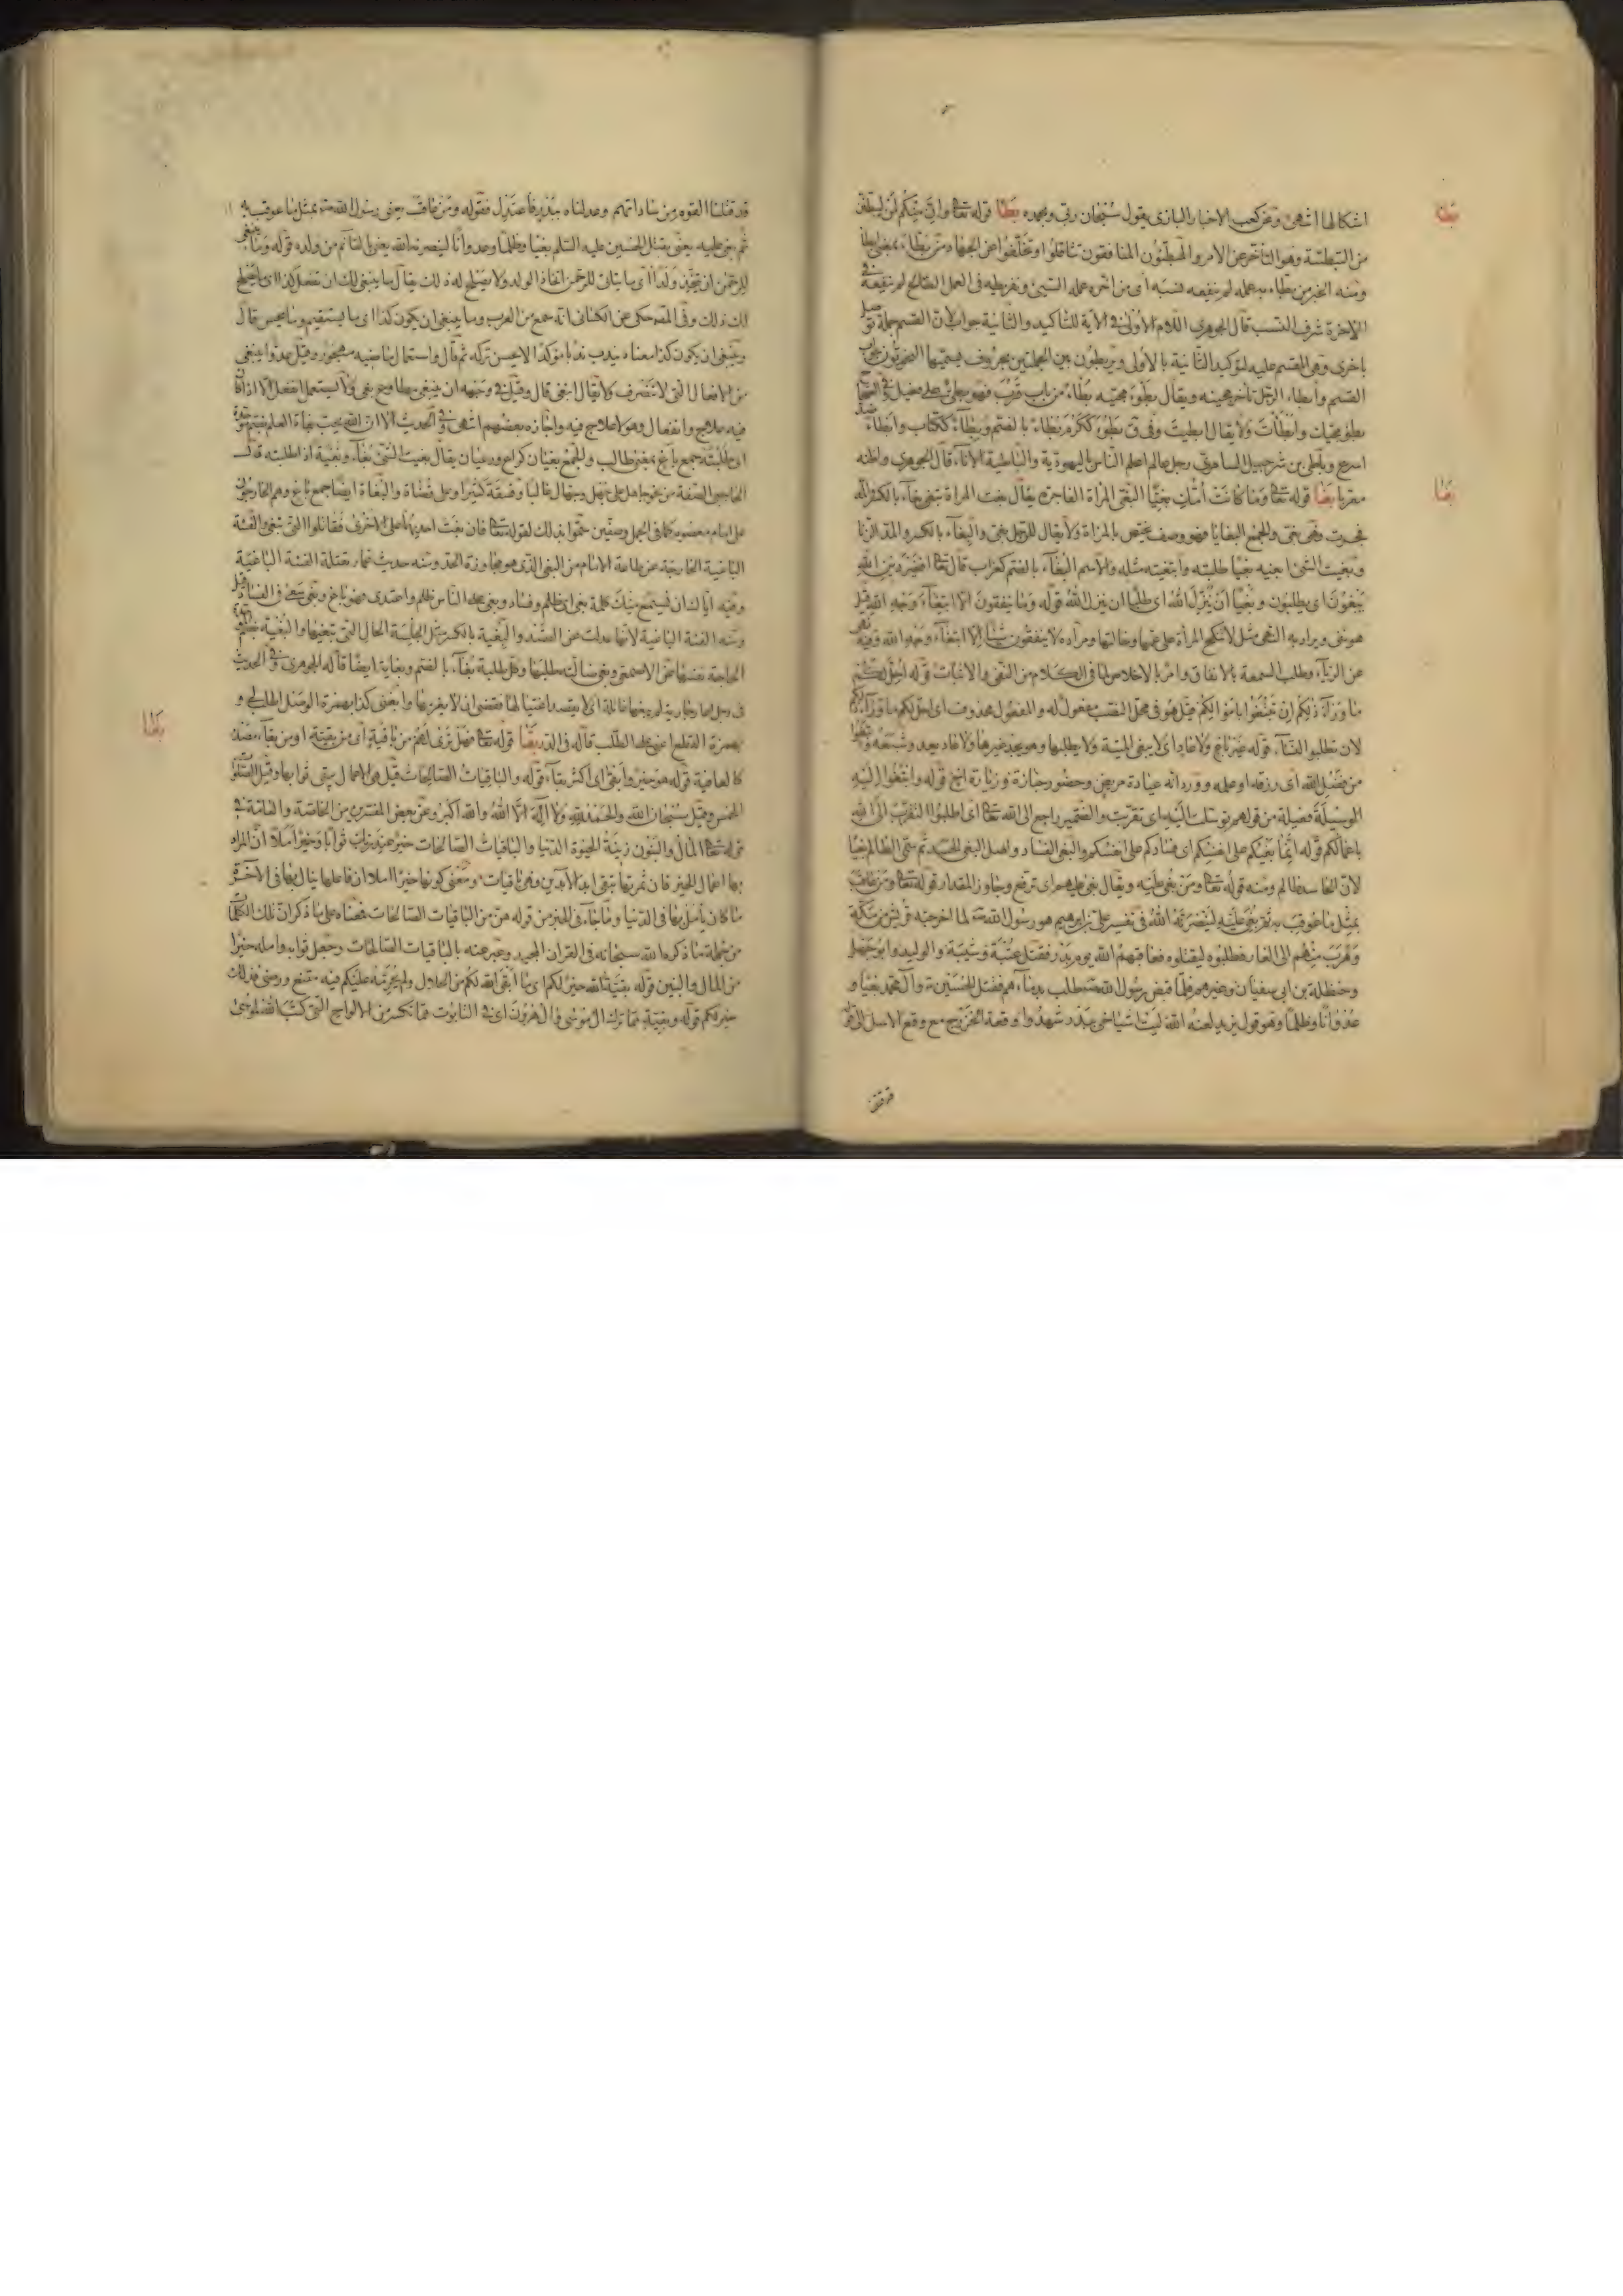 بطا
اشكالها انتهى وعن كعب الاحبار البازى يقول سبحان ربى وبحمده بطا قوله تعا وان منكم لمن ليبطئن
من التبطئة وهو التأخر عن الامر والمبطئون المنافقون تثاقلوا وتخلفوا عن الجهاد من بطاء بمعنى ابطا
ومنه الخبر من بطاء به عمله لم ينفعه نسبه اى من اخره عمله السيئ وتفريطه فى العمل الصالح لم ينفعه فى
الآخرة شرف النسب قال الجوهرى اللام الاولى فى الآية للتاكيد والثانية جواب لان القسم جملة توصل
باخرى وهى المقسم عليه لتؤكيد الثانية بالاولى ويربطون بين الجملتين بحروف يسميها النحويون جواب
القسم وأبطاء الرجل تأخر مجيئه ويقال بطؤ مجيئه بطاء من باب قرب فهو بطئ على فعيل وفى الصحاح
بطؤ مجيئك وابطأت ولا يقال ابطيت وفى ق بطؤ ككرم بطاء بالضم وبطاء ككتاب وابطاء ضد
اسرع وباطى بن شرحبيل السامرى رجل عالم اعلم الناس باليهودية والباطية الاناء قال الجوهرى واظنه
بغا
معربا بغا قوله تعا وما كانت امك بغيا البغى المراة الفاجرة يقال بغت المراة تبغى بغاء بالكسر والمد
فجرت فهى بغى والجمع البغايا فهو وصف يختص بالمراة ولا يقال للرجل بغى والبغاء بالكسر والمد الزنا
وبغيت الشئ ابغيه بغيا طلبته وابتغيته مثله والاسم البغاء بالضم كغراب قال تعا افغير دين الله
يبغون اى يطلبون وبغيا ان ينزل الله اى طلبا ان ينزل الله قوله وما ينفقون الا ابتغاء وجه الله قيل
هو نفى ويراد به النهى مثل لا تنكح المرأة على عمتها وخالتها ومراده لا ينفقون شيئا الا ابتغاء وجه الله وفيه نهى
عن الرياء وطلب السمعة بالانفاق وامر بالاخلاص لما فى الكلام من النفى والاثبات قوله احل لكم
ما وراء ذلكم ان تبتغوا باموالكم قيل هو فى محل النصب مفعول له والمفعول محذوف اى احل لكم ما وراء ذلكم
لان تطلبوا النساء قوله غير باغ ولا عاد اى لا يبغى الميتة ولا يطلبها وهو يجد غيرها ولا عاد يعد وشبعه وابتغوا
من فضل الله اى رزقه او علمه وورد انه عيادة مريض وحضور جنازة وزيارة اخ قوله وابتغوا اليه
الوسيلة فعيلة من قولهم توسلت اليه اى تقربت والضمير راجع الى الله تعا اى اطلبوا التقرب الى الله
باعمالكم قوله انما بغيكم على انفسكم اى فسادكم على انفسكم والبغى الفساد واصل البغى الحسد ثم سمى الظالم بغيا
لان الحاسد ظالم ومنه قوله تعا ومن بغى عليه ويقال بغى عليهم اى ترفع وجاوز المقدار قوله تعا ومن عاقب
بمثل ما عوقب به ثم بغى عليه لينصرنه الله فى تفسير على بن ابرهيم هو رسول الله ص لما اخرجته قريش من مكة
وهرب منهم الى الغار وطلبوه ليقتلوه فعاقبهم الله يوم بدر فقتل عتبة وشيبة والوليد وابو جهل
وحنظلة بن ابى سفيان وغيرهم فلما قبض رسول الله ص طلب بدمائهم فقتل الحسين وآل محمد بغيا و
عدوانا وظلما وهو قول يزيد لعنه الله ليت اشياخى ببدر شهدوا وقعة الخزرج مع وقع الاسل الى قوله
قد قتلنا القوم من ساداتهم وعدلناه ببدر فاعتدل فقوله ومن عاقب يعنى رسول الله ص بمثل ما عوقب به
ثم بغى عليه يعنى بقتل الحسين عليه السلم بغيا وظلما وعدوانا لينصرنه الله يعنى بالقائم من ولده قوله وما ينبغى
للرحمن ان يتخذ ولدا اى ما يتات للرحمن اتخاذ الولد ولا يصلح له ذلك يقال ما ينبغى لك ان تفعل كذا اى ما يصلح
لك ذلك وفى المصـ حكى عن الكسائى انه سمع من العرب وما ينبغى ان يكون كذا اى ما يستقيم وما يحسن قال
وينبغى ان يكون كذا معناه يندب ندبا مؤكدا لا يحسن تركه ثم قال واستعمال ماضيه مهجور وقيل عدوا ينبغى
من الافعال التى لا تتصرف فلا يقال انبغى قال وقيل فى وجهه ان ينبغى مطاوع بغى ولا يستعمل انفعل الا اذا كان
فيه علاج وانفعال وهو لا علاج فيه واجازه بعضهم انتهى وفى الحديث الا ان الله يحب بغاة العلم بضم موحدة
اى طلبته جمع باغ بمعنى طالب والجمع بغيان كراع ورعيان يقال بغيت الشئ بغاء وبغية اذا طلبته
على امام معصوم كما فى الجمل وصفين سموا بذلك لقوله تعا فان بغت احديهما على الاخرى فقاتلوا التى تبغى والفئة
الباغية الخارجة عن طاعة الامام من البغى الذى هو مجاوزة الحد ومنه حديث عمار تقتله الفئة الباغية
وفيه اياك ان يسمع منك كلمة بغى اى ظلم وفساد وبغى على الناس ظلم واعتدى فهو باغ وبغى سعى فى الفساد قيل
ومنه الفئة الباغية لانها عدلت عن القصد والبغية بالكسر مثل الجلسة الحال التى تبغيها والبغية بالضم
الحاجة نفسها عن الاصمعى وبغى ضالته طلبها وكل طلبة بغاء بالضم وبغاية ايضا قاله الجوهرى وفى الحديث
بغا
بهمزة القطع اعنى على الطلب قاله فى الدر بقا قوله تعا فهل ترى لهم من باقية اى من بقية او من بقاء مصدر
كالعافية قوله هو خير وأبقى اى اكثر بقاء قوله والباقيات الصالحات قيل هى الاعمال يبقى ثوابها وقيل الصلوات
الخمس وقيل سبحان الله والحمد لله ولا اله الا الله والله اكبر وعن بعض المفسرين من الخاصة والعامة فى
قوله تعا المال والبنون زينة الحيوة الدنيا والباقيات الصالحات خير عند ربك ثوابا وخير املا ان المراد
بها اعمال الخير فان ثمرتها تبقى ابد الآبدين فهى باقيات ومعنى كونها خيرا املا ان فاعلها ينال بها فى الآخرة
ما كان يأمل بها فى الدنيا وما جاء فى الخبر من قوله هن من الباقيات الصالحات فمعناه على ما ذكر ان تلك الكلمات
من جملة ما ذكره الله سبحانه فى القران المجيد وعبر عنه بالباقيات الصالحات وجعل ثوابه وامله خيرا
من المال والبنين قوله بقية الله خير لكم اى ما ابقى الله لكم من الحلال ولم يحرمه عليكم فيه مقنع ورضى فذلك
خير لكم قوله وبقية مما ترك آل موسى وآل هرون اى فى التابوت مما تكسر من الالواح التى كتب الله لموسى